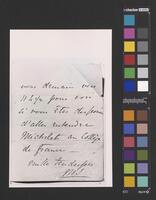 vous demain vers
11 h ½ pour voir
si vous êtes disposé
d'aller entendre
Michelet au Collège
de France
mille tendresses